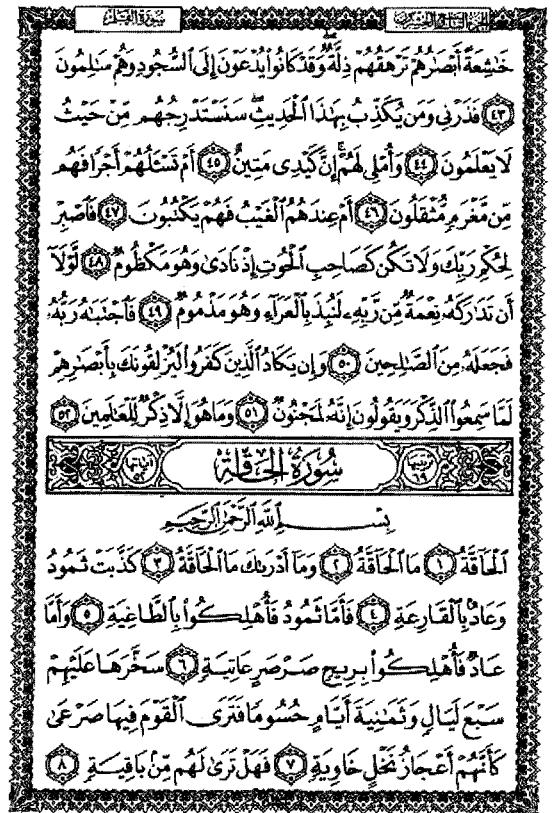 الجزء التاسع والعشرون سورة القلم
خَٰشِعَةً أَبْصَٰرُهُمْ تَرْهَقُهُمْ ذِلَّةٌ ۖ وَقَدْ كَانُوا۟ يُدْعَوْنَ إِلَى ٱلسُّجُودِ وَهُمْ سَٰلِمُونَ
٤٣ فَذَرْنِى وَمَن يُكَذِّبُ بِهَٰذَا ٱلْحَدِيثِ ۖ سَنَسْتَدْرِجُهُم مِّنْ حَيْثُ
لَا يَعْلَمُونَ ٤٤ وَأُمْلِى لَهُمْ ۚ إِنَّ كَيْدِى مَتِينٌ ٤٥ أَمْ تَسْـَٔلُهُمْ أَجْرًا فَهُم
مِّن مَّغْرَمٍ مُّثْقَلُونَ ٤٦ أَمْ عِندَهُمُ ٱلْغَيْبُ فَهُمْ يَكْتُبُونَ ٤٧ فَٱصْبِرْ
لِحُكْمِ رَبِّكَ وَلَا تَكُن كَصَاحِبِ ٱلْحُوتِ إِذْ نَادَىٰ وَهُوَ مَكْظُومٌ ٤٨ لَّوْلَآ
أَن تَدَٰرَكَهُۥ نِعْمَةٌ مِّن رَّبِّهِۦ لَنُبِذَ بِٱلْعَرَآءِ وَهُوَ مَذْمُومٌ ٤٩ فَٱجْتَبَٰهُ رَبُّهُۥ
فَجَعَلَهُۥ مِنَ ٱلصَّٰلِحِينَ ٥٠ وَإِن يَكَادُ ٱلَّذِينَ كَفَرُوا۟ لَيُزْلِقُونَكَ بِأَبْصَٰرِهِمْ
لَمَّا سَمِعُوا۟ ٱلذِّكْرَ وَيَقُولُونَ إِنَّهُۥ لَمَجْنُونٌ ٥١ وَمَا هُوَ إِلَّا ذِكْرٌ لِّلْعَٰلَمِينَ ٥٢
ترتيبها ٦٩ سُورَةُ الحَاقَّةِ آياتها ٥٢
بِسْمِ ٱللَّهِ ٱلرَّحْمَٰنِ ٱلرَّحِيمِ
ٱلْحَآقَّةُ ١ مَا ٱلْحَآقَّةُ ٢ وَمَآ أَدْرَىٰكَ مَا ٱلْحَآقَّةُ ٣ كَذَّبَتْ ثَمُودُ
وَعَادٌۢ بِٱلْقَارِعَةِ ٤ فَأَمَّا ثَمُودُ فَأُهْلِكُوا۟ بِٱلطَّاغِيَةِ ٥ وَأَمَّا
عَادٌ فَأُهْلِكُوا۟ بِرِيحٍ صَرْصَرٍ عَاتِيَةٍ ٦ سَخَّرَهَا عَلَيْهِمْ
سَبْعَ لَيَالٍ وَثَمَٰنِيَةَ أَيَّامٍ حُسُومًا فَتَرَى ٱلْقَوْمَ فِيهَا صَرْعَىٰ
كَأَنَّهُمْ أَعْجَازُ نَخْلٍ خَاوِيَةٍ ٧ فَهَلْ تَرَىٰ لَهُم مِّنۢ بَاقِيَةٍ ٨